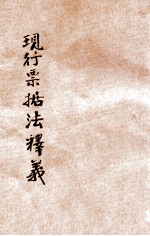 現行票据法釋義